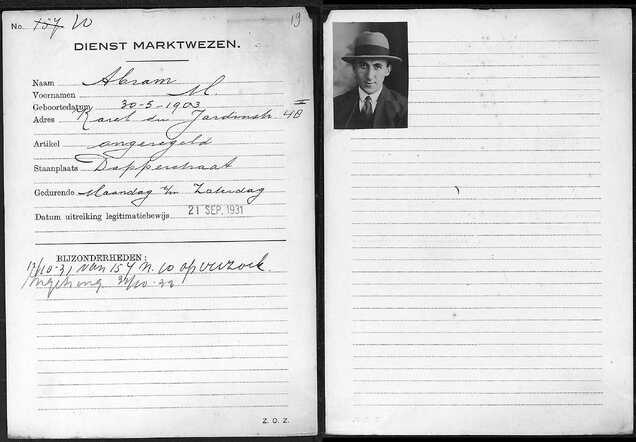 No. 157 10
19
DIENST MARKTWEZEN.
Naam Abram
Voornamen M.
Geboortedatum 30-5-1903
Adres Karel du Jardinstr. 48 II
Artikel ongeregeld
Staanplaats Dapperstraat
Gedurende Maandag t/m Zaterdag
Datum uitreiking legitimatiebewijs 21 SEP. 1931
BIJZONDERHEDEN:
12/10-31 van 157 n. 10 op verzoek.
Z. O. Z.